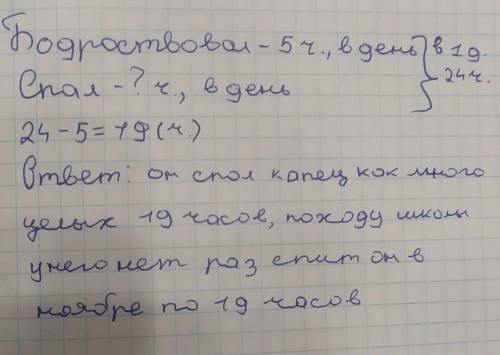 Бодроствовал - 5 ч., в день } в 1 д. 24 ч.
Спал - ? ч., в день
24 - 5 = 19 (ч.)
Ответ: он спол капец как много
целых 19 часов, походу школы
унего нет раз спит он в
ноябре по 19 часов